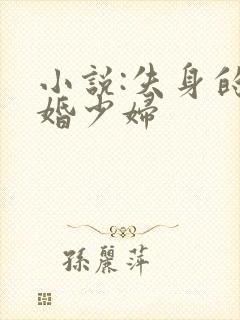 小説:失身的
婚少婦
孫麗萍